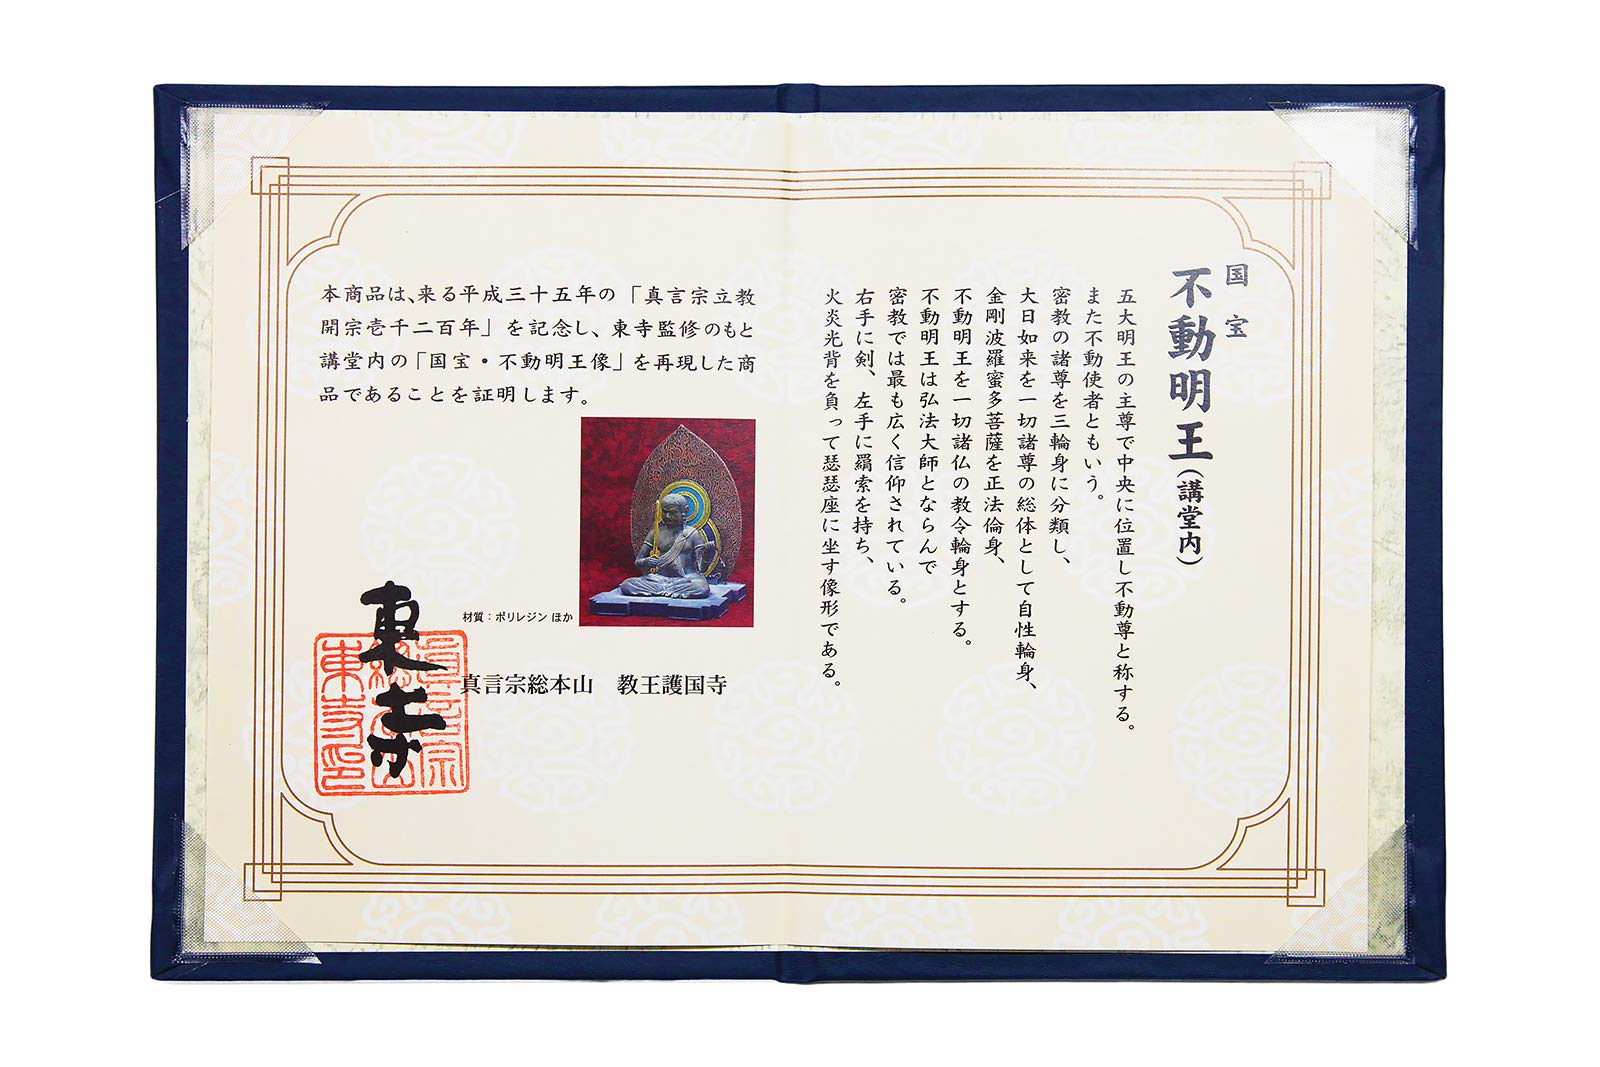 国宝
不動明王(講堂内)
五大明王の主尊で中央に位置し不動尊と称する。
また不動使者ともいう。
密教の諸尊を三輪身に分類し、
大日如来を一切諸尊の総体として自性輪身、
金剛波羅蜜多菩薩を正法倫身、
不動明王を一切諸仏の教令輪身とする。
不動明王は弘法大師とならんで
密教では最も広く信仰されている。
右手に剣、左手に羂索を持ち、
火炎光背を負って瑟瑟座に坐す像形である。
本商品は、来る平成三十五年の「真言宗立教
開宗壱千二百年」を記念し、東寺監修のもと
講堂内の「国宝・不動明王像」を再現した商
品であることを証明します。
材質：ポリレジン ほか
真言宗総本山 教王護国寺
東寺